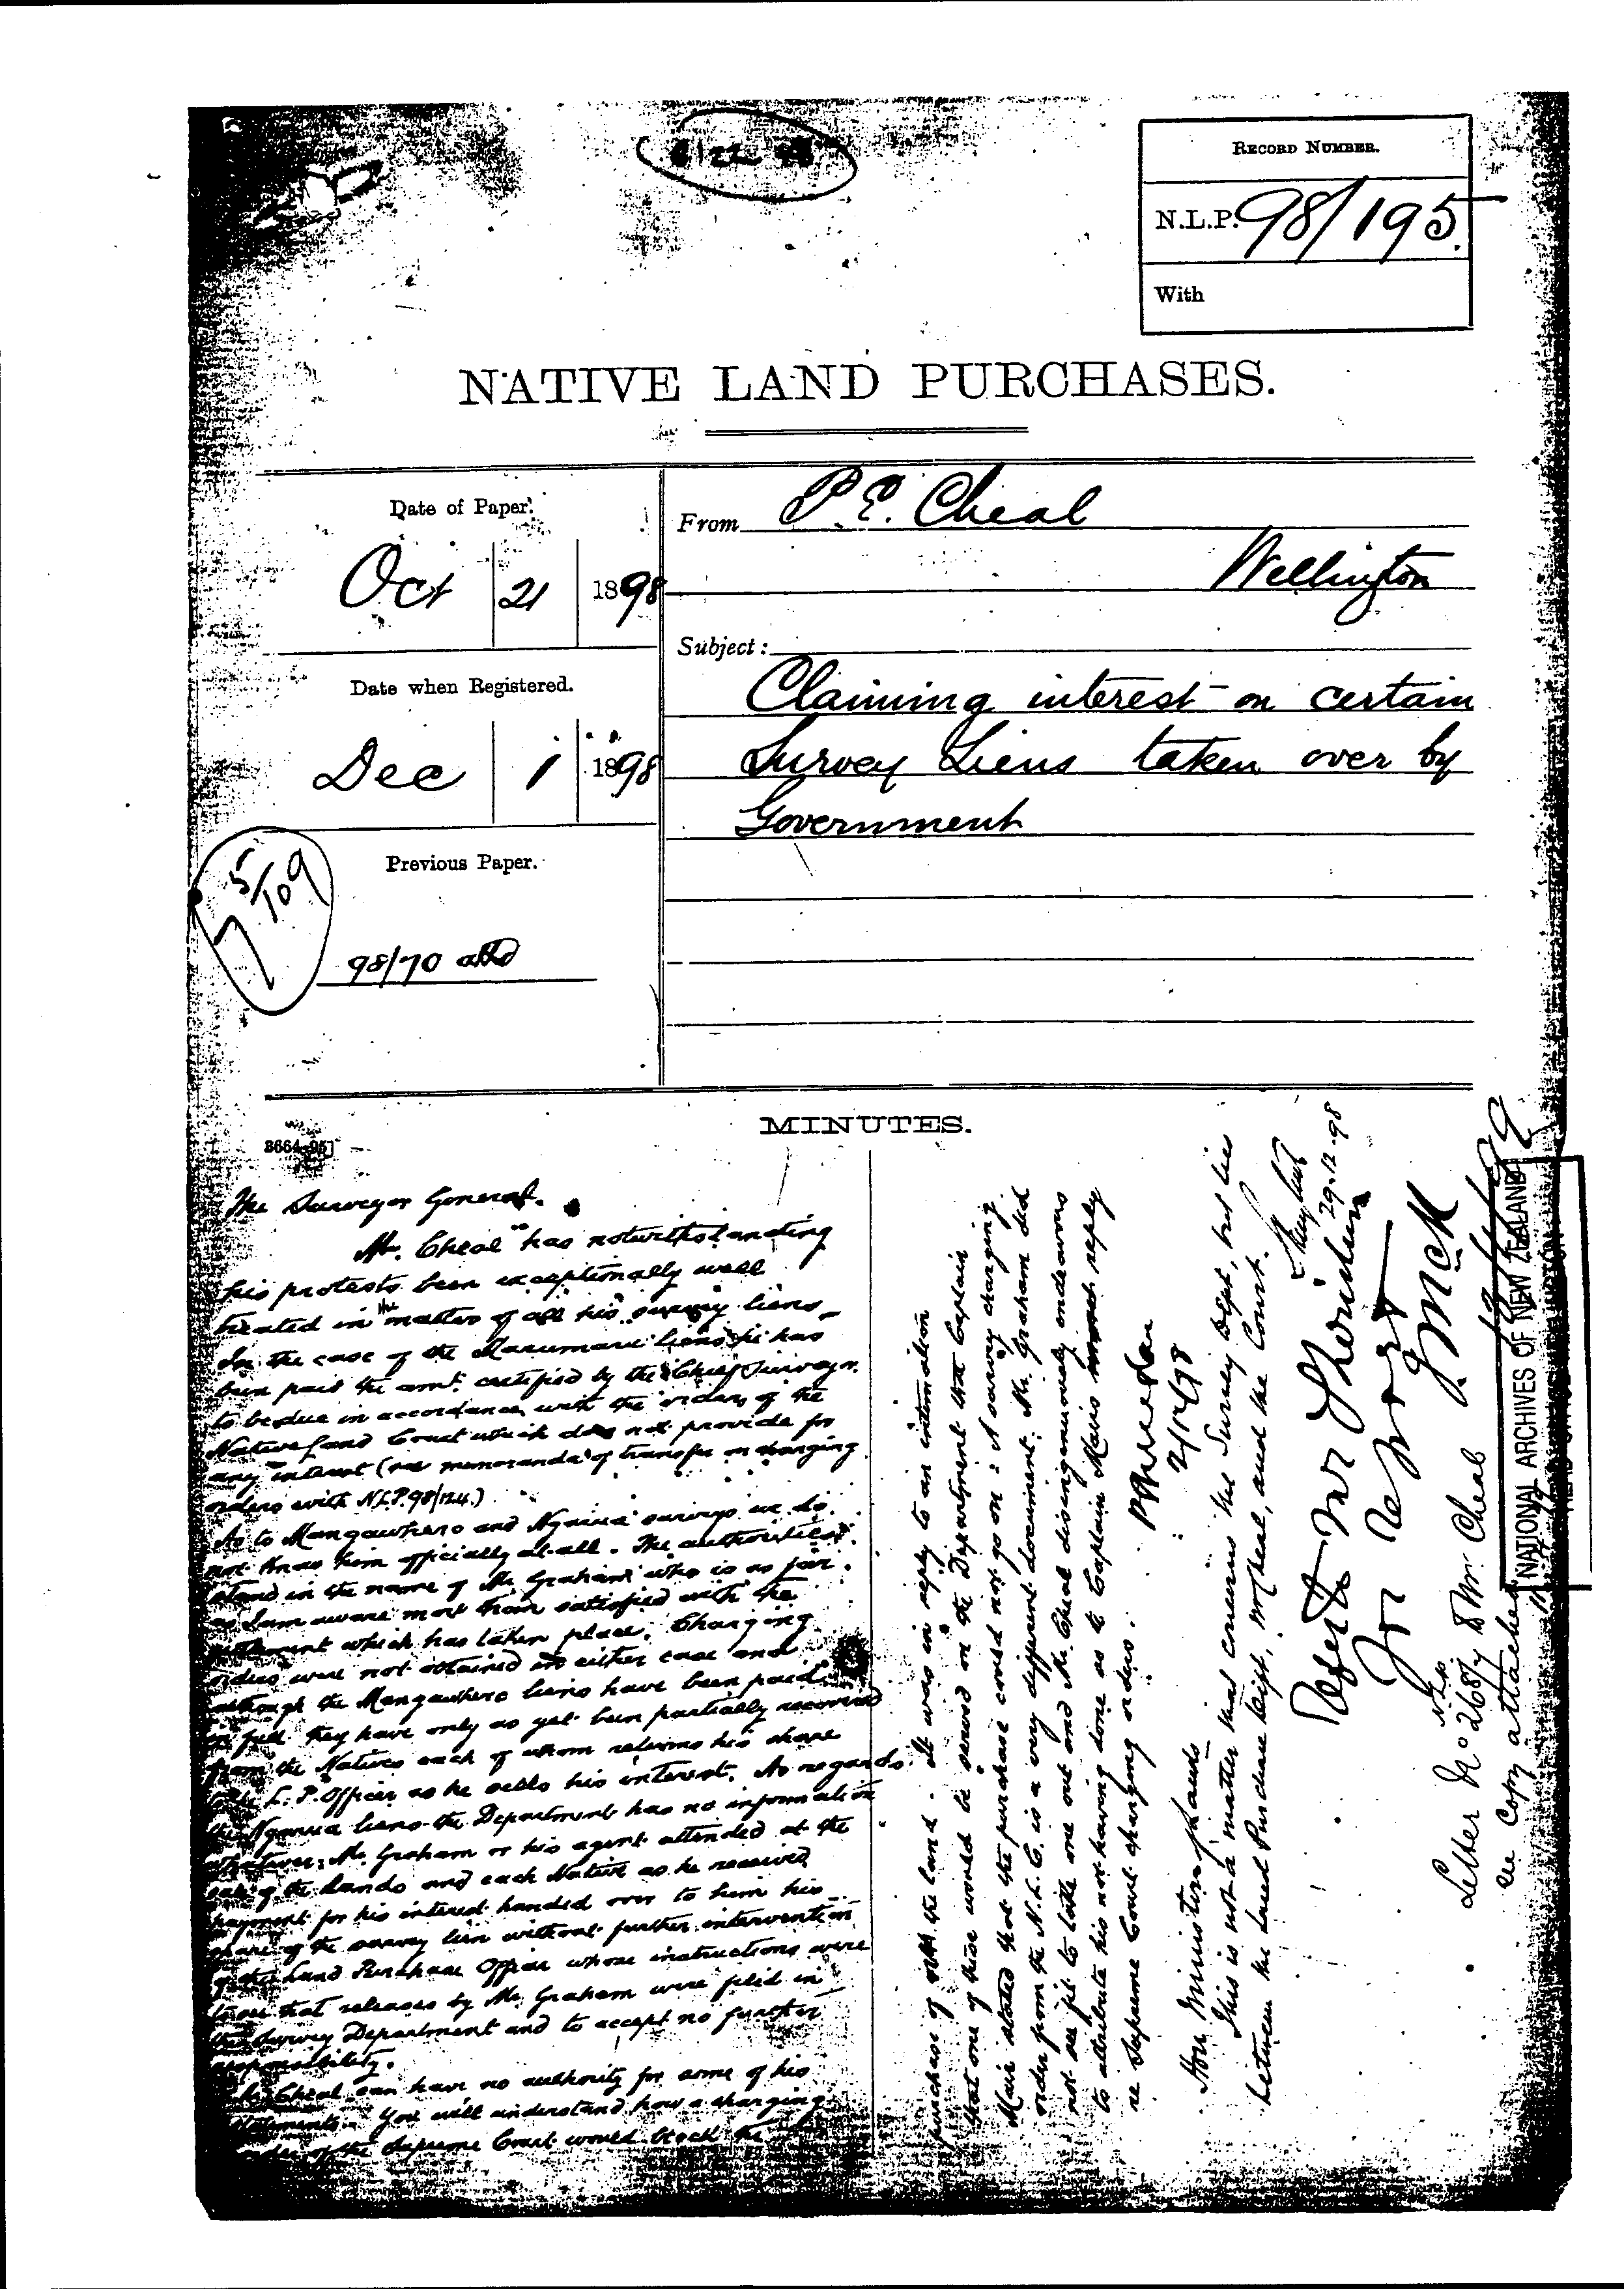 RECORD NUMBER.
N.L.P. 98/195.
With
NATIVE LAND PURCHASES.
Date of Paper.
Oct 21 1898
Date when Registered.
Dec 1 1898
Previous Paper.
98/70 attd
7 5/109
From P. E. Cheal
Wellington
Subject:
Claiming interest on certain
Survey Liens taken over by
Government
MINUTES.
The Surveyor General.
Mr. Cheal has notwithstanding
his protests been exceptionally well
treated in the matter of all his survey liens.
In the case of the liens he has
been paid the amt. certified by the Chief Surveyor
to be due in accordance with the orders of the
Native Land Court which does not provide for
any interest (see memoranda of transfer on charging
orders with N.L.P. 98/124.)
As to Mangawhero and Ngarua surveys we do
not know him officially at all. The authorities
stand in the name of Mr. Graham who is as far
as I am aware more than satisfied with the
settlement which has taken place. Charging
orders were not obtained in either case and
although the Mangawhero liens have been paid
in full they have only as yet been partially recovered
from the Natives each of whom returns his share
to the L. P. Officer as he sells his interest. As regards
the Ngarua liens the Department has no information
whatever; Mr. Graham or his agent attended at the
sale of the lands and each Native as he received
payment for his interest handed over to him his
share of the survey lien without further intervention
of the Land Purchase Officer whose instructions were
to see that releases by Mr. Graham were filed in
the Survey Department and to accept no further
responsibility.
Mr. Cheal can have no authority for some of his
statements. You will understand how a charging
order of the Supreme Court would block the
purchase of the land. It was in reply to an intimation
that one of these would be served on the Department that Captain
Mair stated that the purchase could not go on: A survey charging
order from the N.L.C. is a very different document. Mr. Graham did
not see fit to take one out and Mr. Cheal disingenuously endeavours
to attribute his not having done as to Captain Mair's reply
re Supreme Court charging orders.
P. Sheridan
2/12/98
Hon Minister of Lands
This is not a matter that concerns the Survey Dept, but lies
between the Land Purchase Dept, Mr Cheal, and the Court.
29.12.98
Refer to Mr Sheridan
for report
J McK
Letter No 268/4 to Mr Cheal
see Copy attached
NATIONAL ARCHIVES OF NEW ZEALAND